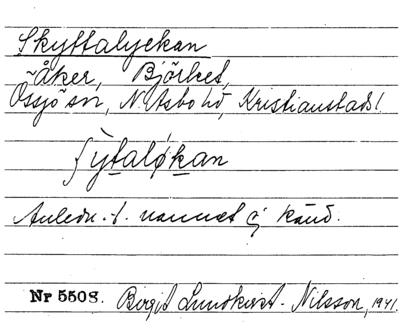 Skyttalyckan
~åker, Björket,
Össjö sn, N. Åsbo hd, Kristianstads l
ʃýtaløkan
Anledn. t. namnet ej känd.
Nr 5508. Birgit Lundkvist-Nilsson, 1941.